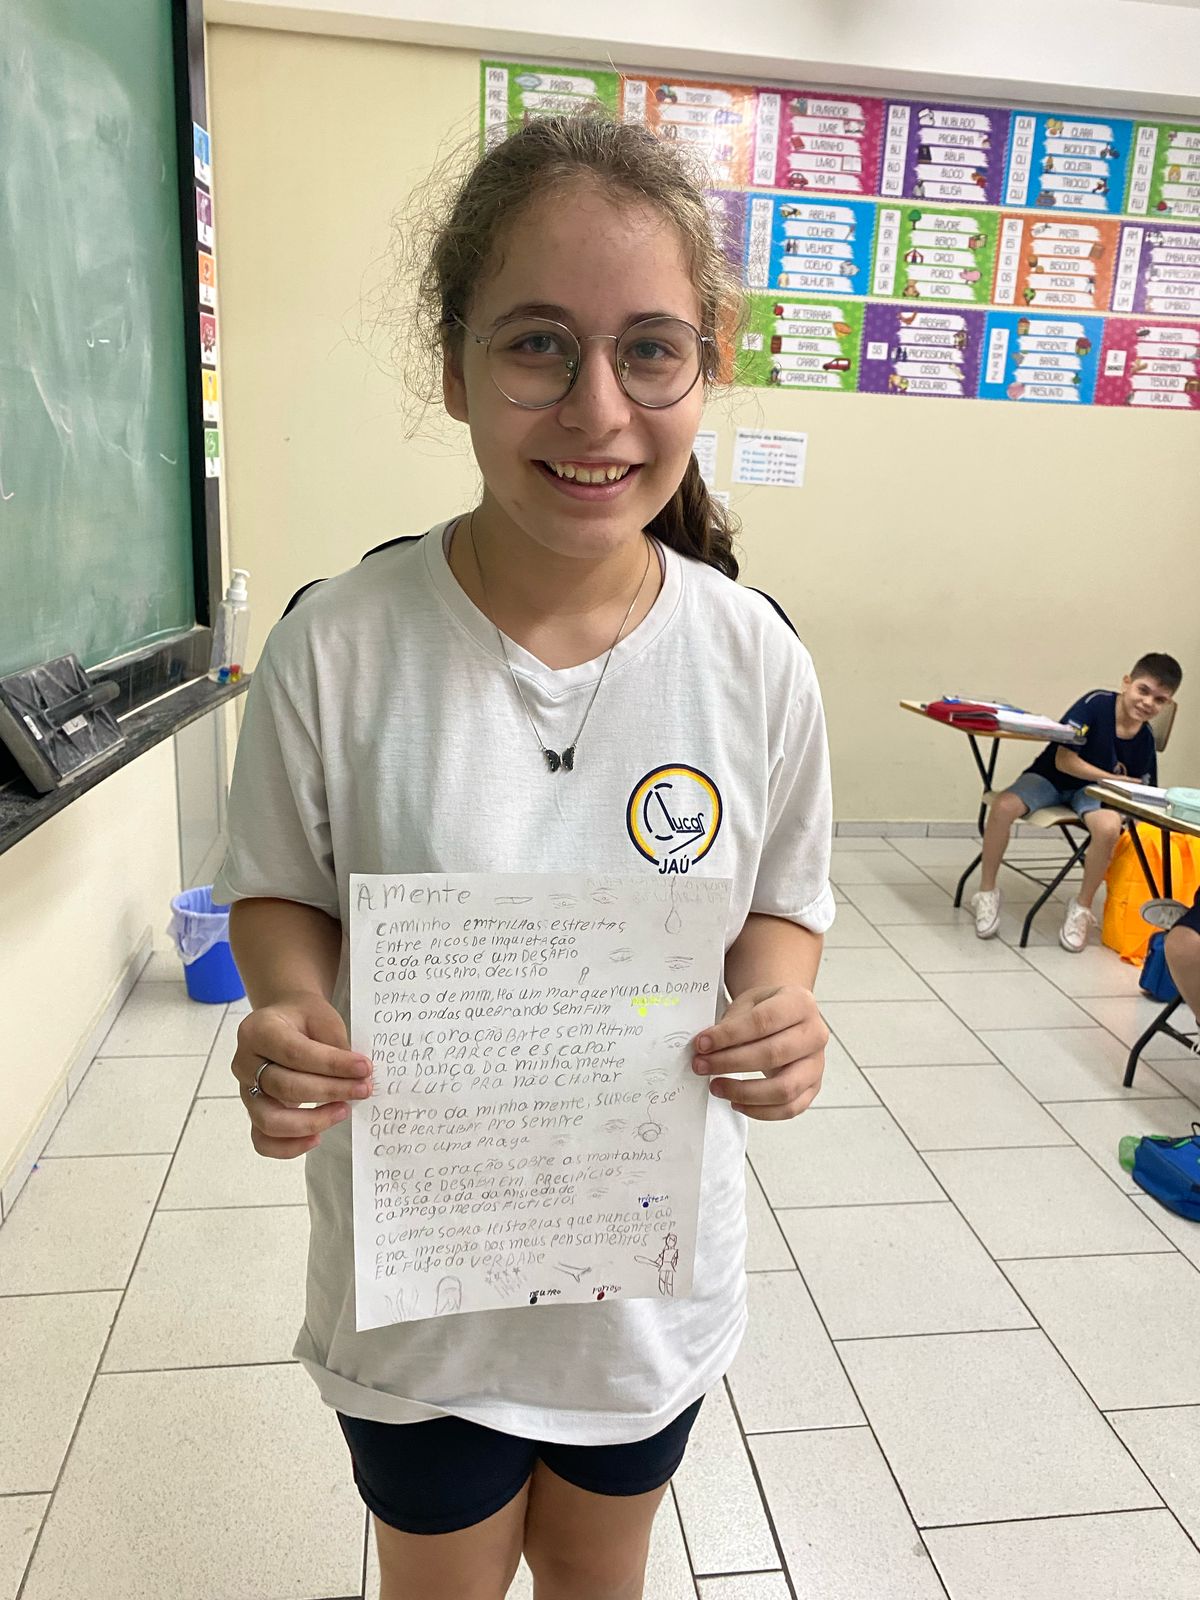 PRA
PRE
PRI
PRATO
TRA
TRATOR
TREM
VRA
VRE
VRI
VRO
VRU
LAVRADOR
LIVRE
LIVRINHO
LIVRO
VRUM
BLA
BLE
BLI
BLO
BLU
NUBLADO
PROBLEMA
BÍBLIA
BLOCO
BLUSA
CLA
CLE
CLI
CLO
CLU
CLARA
BICICLETA
CICLISTA
TRICICLO
CLUBE
FLA
FLE
FLI
FLO
FLU
LHA
ABELHA
COLHER
VELHICE
COELHO
SILHUETA
AR
ER
IR
OR
UR
ÁRVORE
BERÇO
CIRCO
PORCO
URSO
AS
ES
IS
OS
US
PASTA
ESCADA
BISCOITO
MOSCA
ARBUSTO
AM
EM
IM
OM
UM
BOMBOM
UMBIGO
BETERRABA
ESCORREDOR
BARRIL
CARRO
CARRUAGEM
SS
PÁSSARO
CARROSSEL
PROFISSIONAL
OSSO
SUSSURRO
CASA
PRESENTE
BRASIL
BESOURO
PRESUNTO
R
BARATA
SEREIA
CARIMBO
TESOURO
URUBU
Horário da Biblioteca
Lucas
JAÚ
A MENTE
CAMINHO EM TRILHAS ESTREITAS
ENTRE PICOS DE INQUIETAÇÃO
CADA PASSO É UM DESAFIO
CADA SUSPIRO, DECISÃO
DENTRO DE MIM, HÁ UM MAR QUE NUNCA DORME
COM ONDAS QUEBRANDO SEM FIM
MEU CORAÇÃO BATE SEM RITIMO
MEU AR PARECE ESCAPAR
E NA DANÇA DA MINHA MENTE
EU LUTO PRA NÃO CHORAR
DENTRO DA MINHA MENTE, SURGE "ESE"
QUE PERTUBAR PRO SEMPRE
COMO UMA PRAGA
MEU CORAÇÃO SOBRE AS MONTANHAS
MAS SE DESABA EM PRECIPÍCIOS
NA ESCALADA DA ANSIEDADE
CARREGO MEDOS FICTÍCIOS
tristeza
O VENTO SOPRA HISTÓRIAS QUE NUNCA VÃO
ACONTECER
E NA IMESIDÃO DOS MEUS PENSAMENTOS
EU FUJO DA VERDADE
neutro